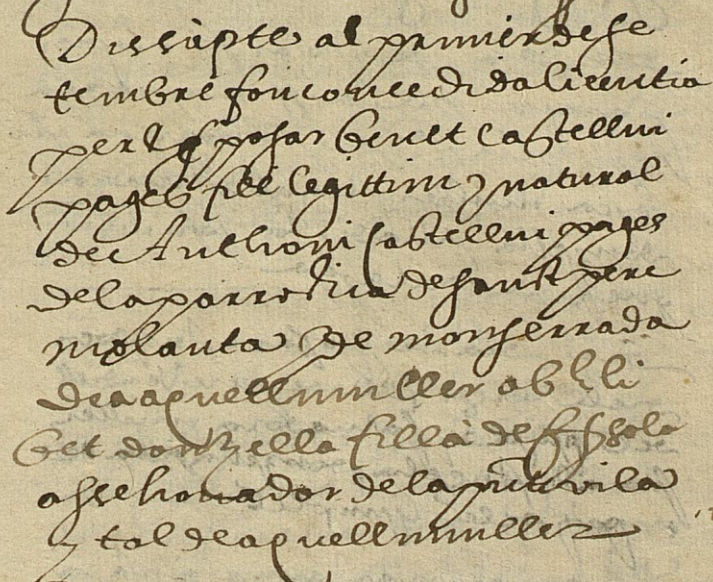 Dissapte al primer de se
tembre fou concedida licentia
per sposar Benet Castellvi
pages fill legittim y natural
de Anthoni Castellvi pages
de la parrochia de sanct pere
molanta y de monserrada
de aquell muller ab Eli
bet donzella filla de
assehonador de la vila
y tal de aquell muller